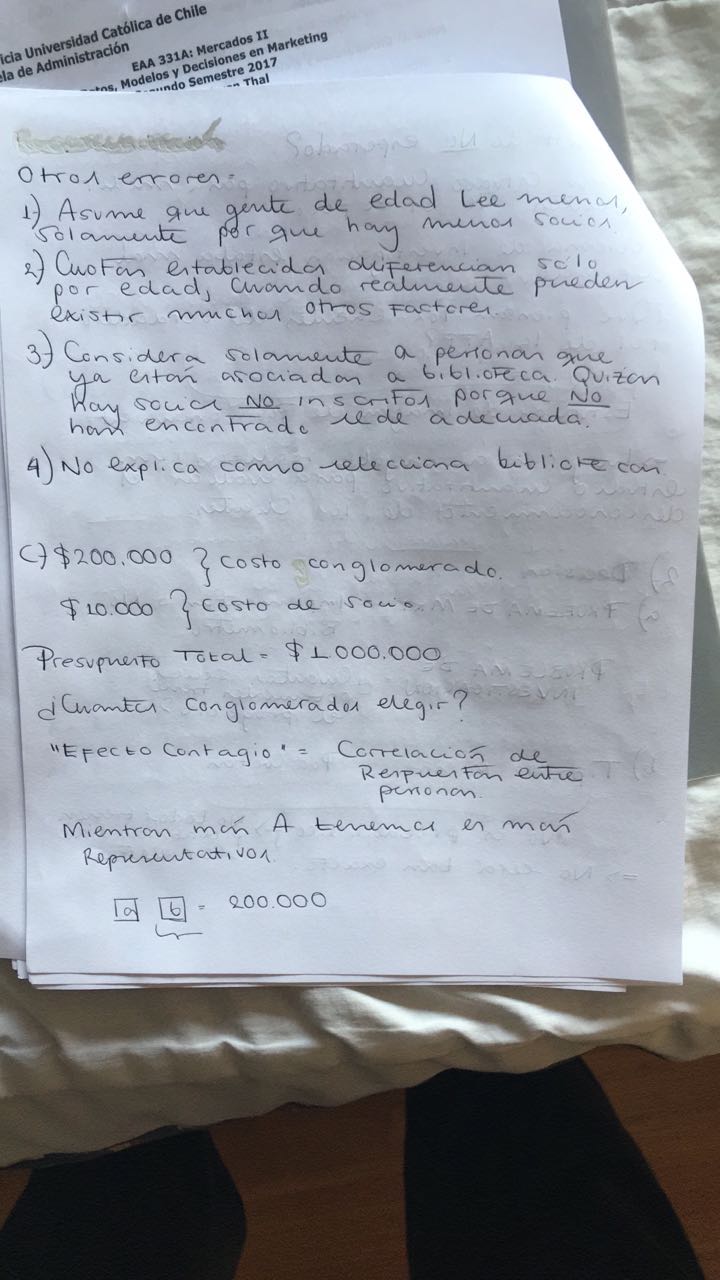 icia Universidad Católica de Chile
ela de Administración
EAA 331A: Mercados II
tos, Modelos y Decisiones en Marketing
undo Semestre 2017
n Thal
Otros errores:
1) Asume que gente de edad Lee menos,
solamente por que hay menos socios.
2) Cuotas establecidas diferencian sólo
por edad, cuando realmente pueden
existir muchos otros factores.
3) Considera solamente a personas que
ya están asociadas a biblioteca. Quizás
hay socios NO inscritos porque NO
han encontrado sede adecuada.
4) No explica como selecciona bibliotecas.
C) $200.000 } Costo conglomerado.
$10.000 } Costo de socio.
Presupuesto Total = $1000.000
¿Cuantos conglomerados elegir?
"Efecto Contagio" = Correlación de
Respuestas entre
personas.
Mientras más A tenemos es más
Representativos.
a b = 200.000